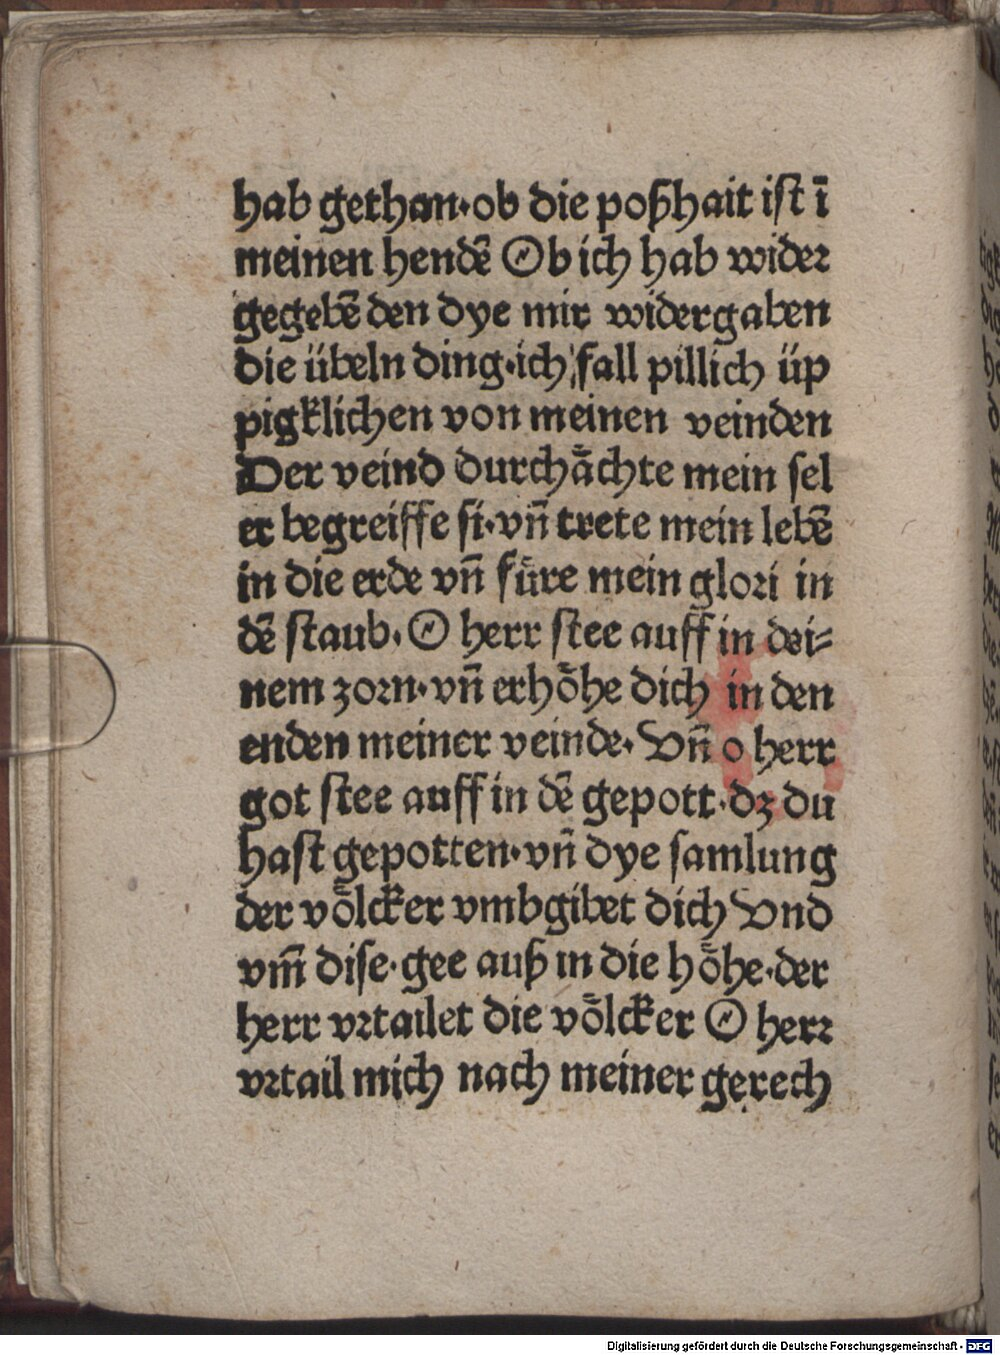 hab gethan·ob die poßhait ist ī
meinen hendē Ob ich hab wider
gegebē den dye mir widergaben
die übeln ding·ich fall pillich üp
pigklichen von meinen veinden
Der veind durchaͤchte mein sel
er begreiffe si·vn̄ trete mein lebē
in die erde vn̄ fuͤre mein glori in
dē staub. O herr stee auff in dei⸗
nem zorn·vn̄ erhoͤhe dich in den
enden meiner veinde. Vn̄ o herr
got stee auff in dē gepott·dz du
hast gepotten·vn̄ dye samlung
der voͤlcker vmbgibet dich Vnd
vm̄ dise·gee auß in die hoͤhe·der
herr vrtailet die voͤlcker O herr
vrtail mich nach meiner gerech
Digitalisierung gefördert durch die Deutsche Forschungsgemeinschaft - DFG